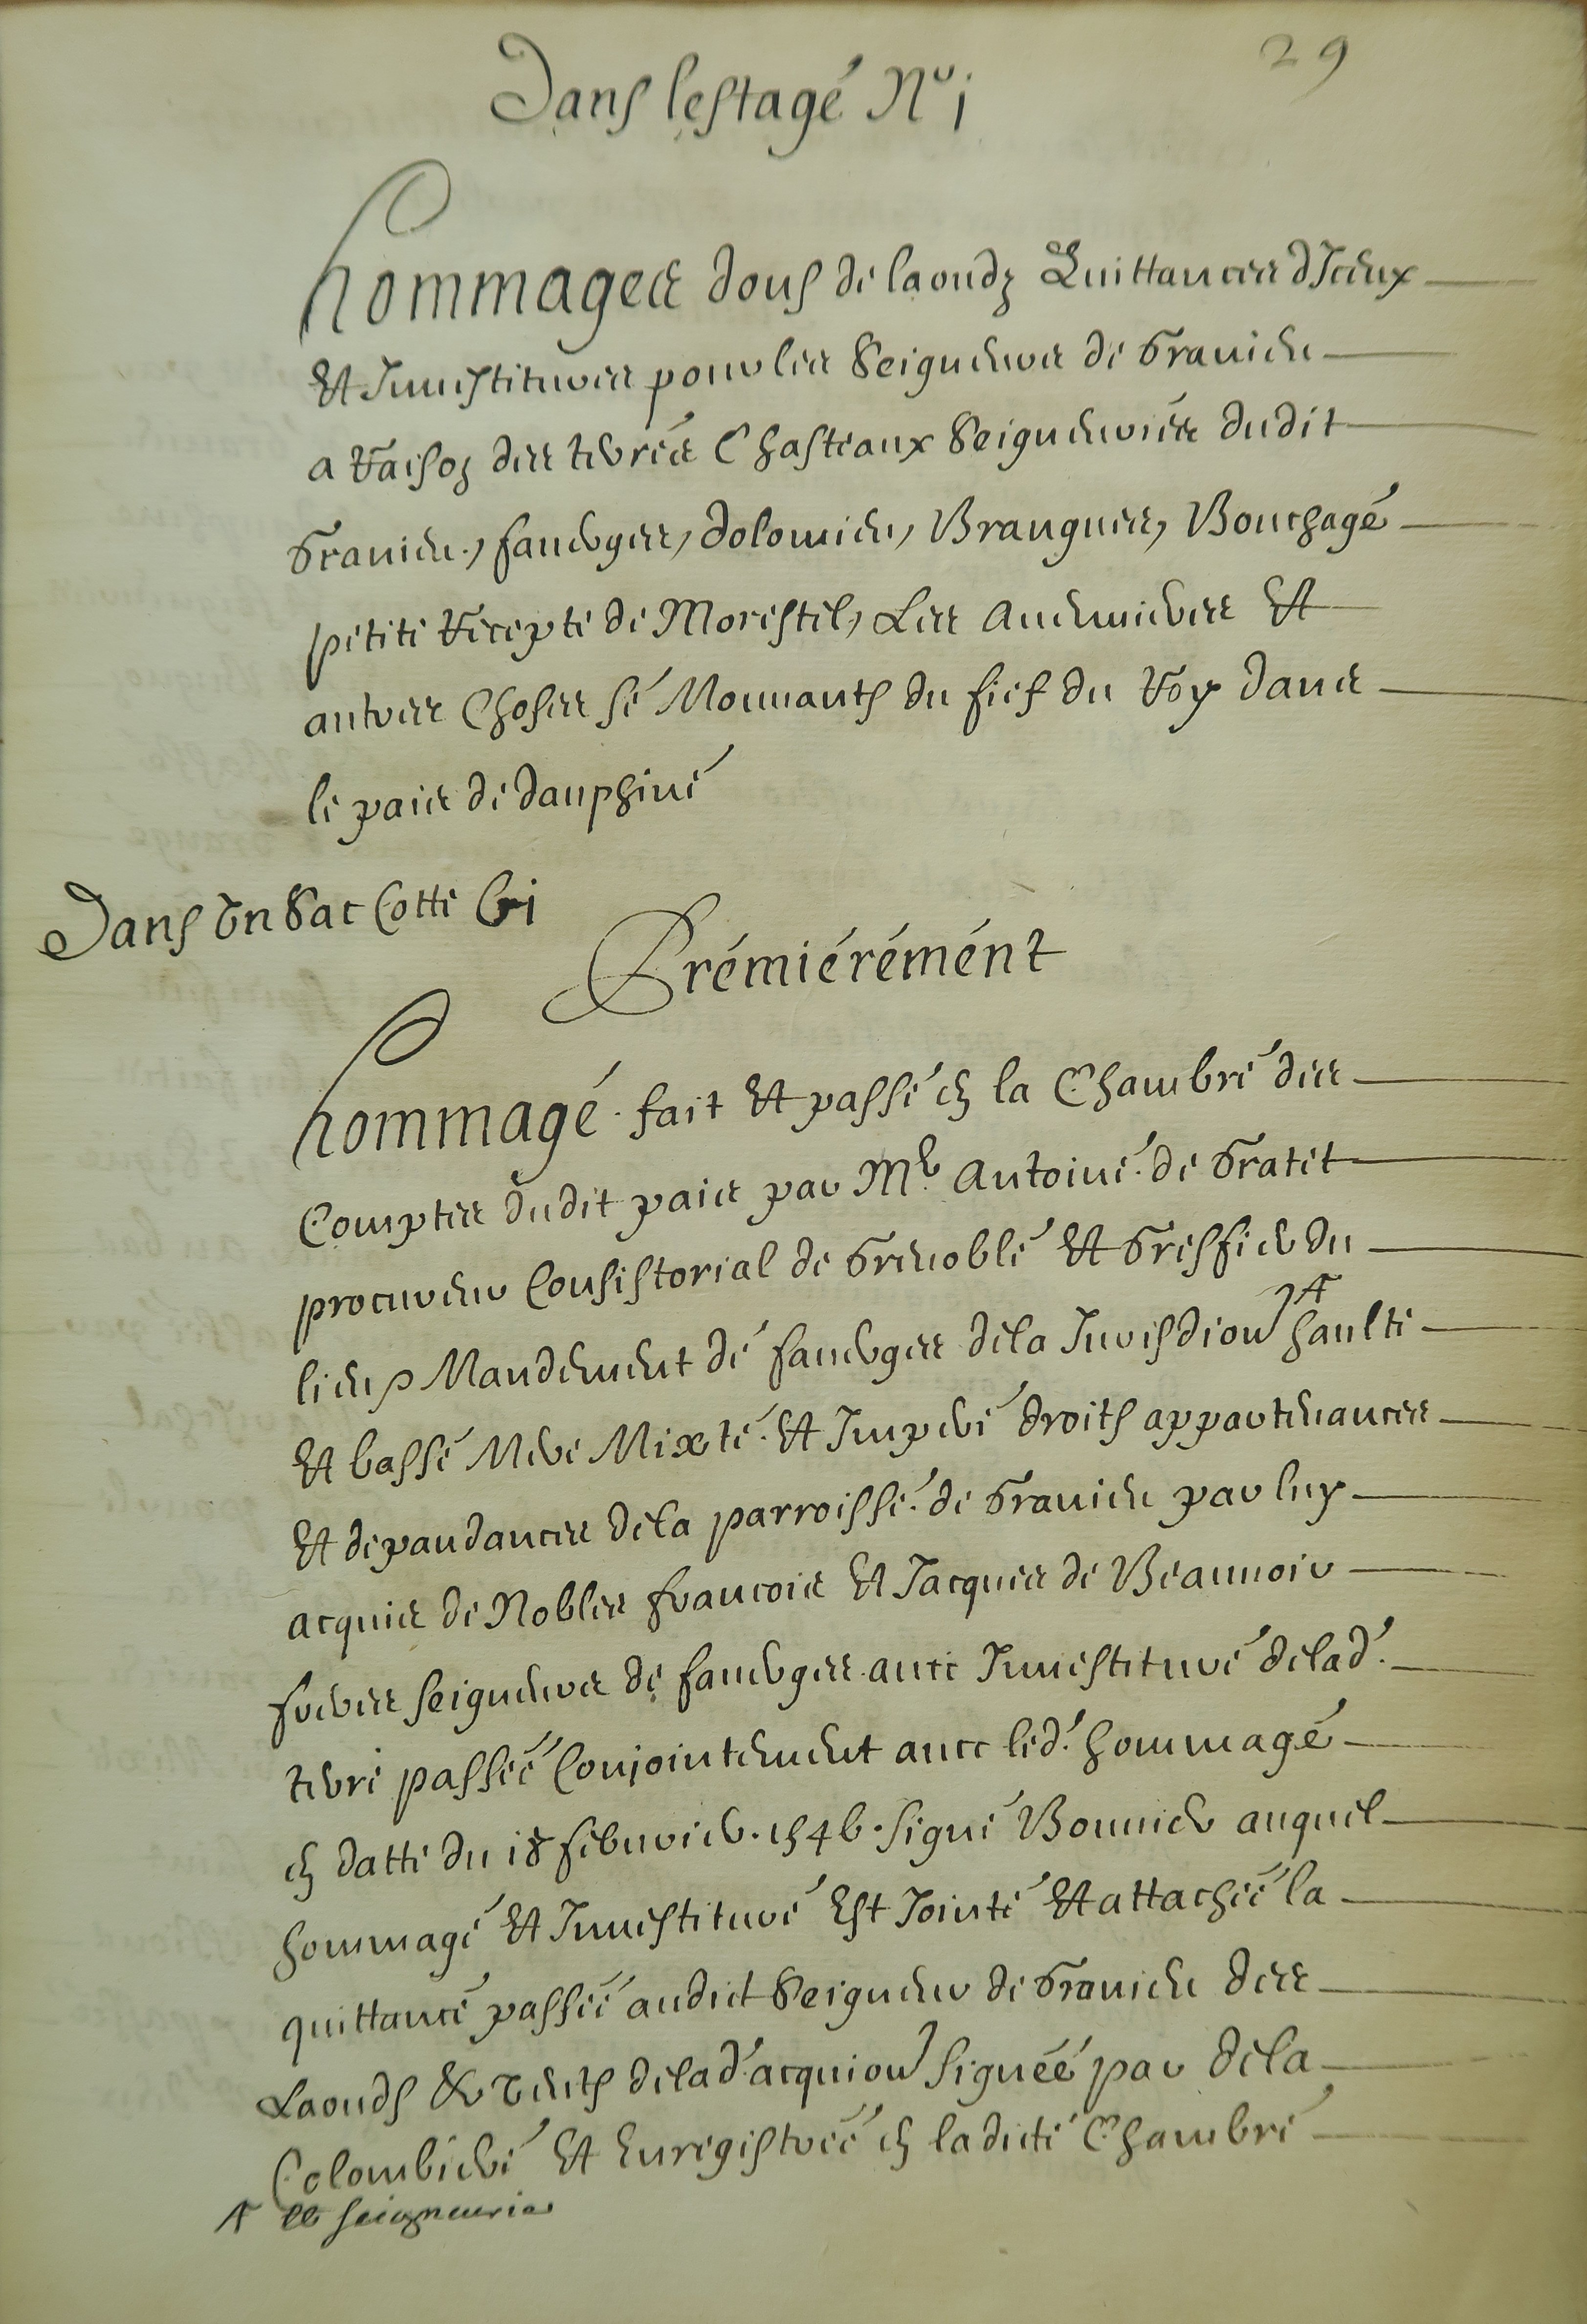 29
Dans lestage No i
hommages dons de laoudz Quittances d'Iceux
Et Inuestitures pour les Seigneurs de Granieu
a Raison des terres Chasteaux Seigneuries dudit
Granieu, faverges, dolomieu, Brangues, Bouchage
petite Recepte de Morestel, Les Auenieres Et
autres Choses se Mouuants du fief du Roy dans
le pais de dauphiné
Dans Un Sac Cotté
Premierement
hommage fait Et passé en la Chambre des
Comptes dudit pais par Mr Antoine de Gratet
procureur Consistorial de Grenoble Et Greffier du
lieu Mandement de faverges de la Jurisdion haulte
Et basse Mere Mixte Et Impere droits appartenances
Et depandances de la parroisse de Granieu par luy
acquis de Nobles francois Et Jacques de Beauuoir
freres Seigneurs de faverges auec Inuestiture de lad.
terre passée Conjointement auec led. hommage
en datte du 18 feburier 1546 Signé Bonnier auquel
hommage Et Inuestiture Est Jointe Et attachée la
quittance passée audict Seigneur de Granieu des
Laouds & vents de lad. acquion Signée par de la
Colombiere Et Enregistrée en ladicte Chambre
Et Seigneurie